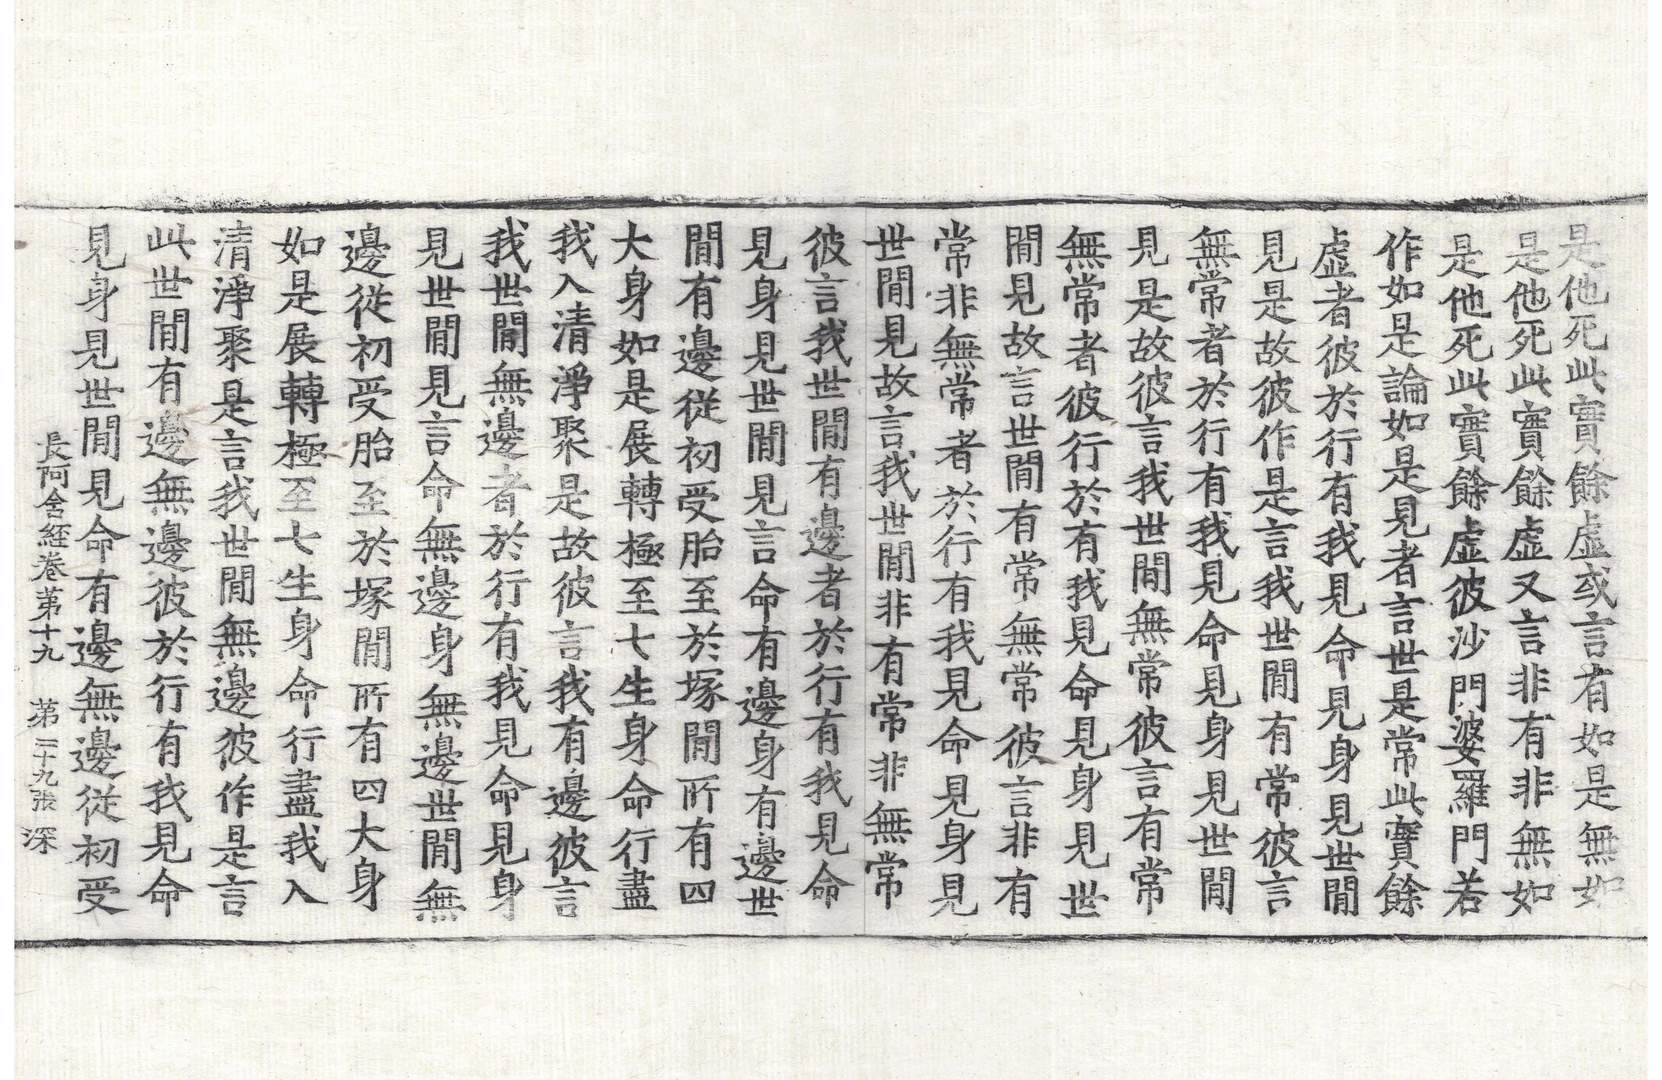 是他死此實餘虛或言有如是無如
是他死此實餘虛又言非有非無如
是他死此實餘虛彼沙門婆羅門若
作如是論如是見者言世是常此實餘
虛者彼於行有我見命見身見世閒
見是故彼作是言我世閒有常彼言
無常者於行有我見命見身見世閒
見是故彼言我世閒無常彼言有常
無常者彼行於有我見命見身見世
閒見故言世閒有常無常彼言非有
常非無常者於行有我見命見身見
世閒見故言我世閒非有常非無常
彼言我世閒有邊者於行有我見命
見身見世閒見言命有邊身有邊世
閒有邊從初受胎至於塚閒所有四
大身如是展轉極至七生身命行盡
我入清淨聚是故彼言我有邊彼言
我世閒無邊者於行有我見命見身
見世閒見言命無邊身無邊世閒無
邊從初受胎至於塚閒所有四大身
如是展轉極至七生身命行盡我入
清淨聚是言我世閒無邊彼作是言
此世閒有邊無邊彼於行有我見命
見身見世閒見命有邊無邊從初受
長阿含経卷第十九 第二十九張 深